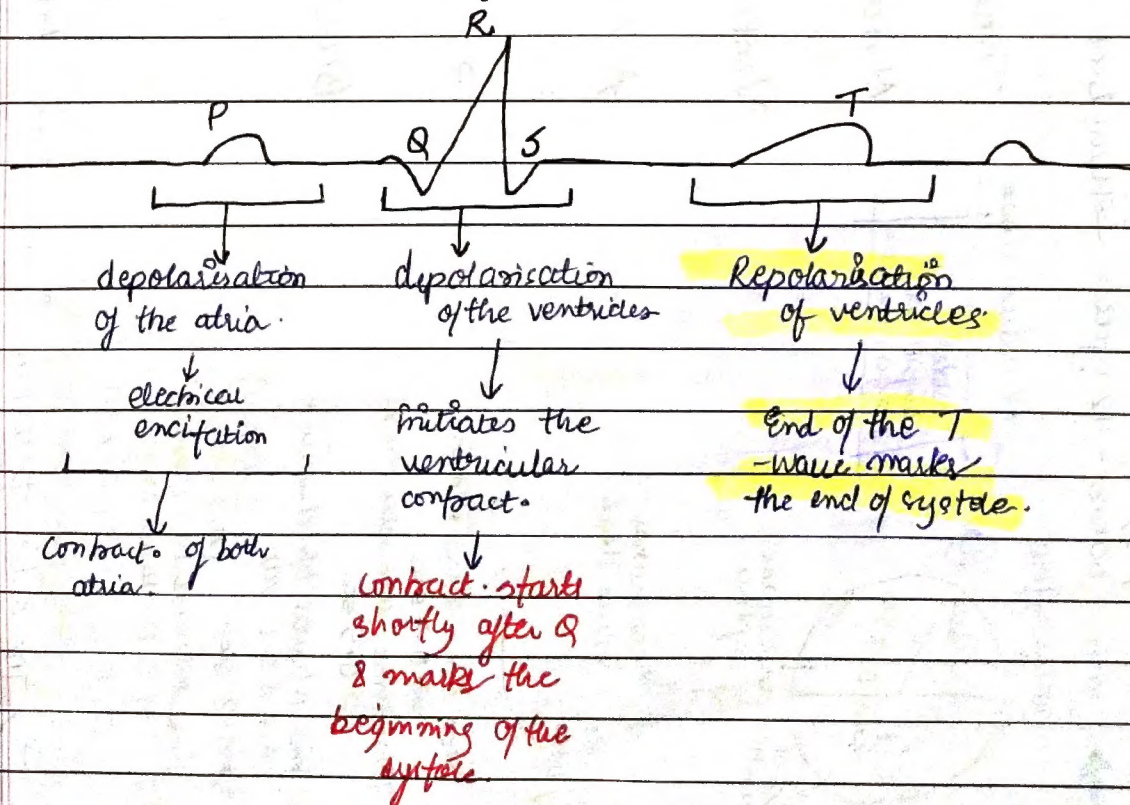 R
P
Q
S
T
depolarisation
of the atria.
electrical
encitation
contract. of both
atria.
depolarisation
of the ventricles
initiates the
ventricular
contract.
contract. starts
shortly after Q
& marks the
beginning of the
systole.
Repolarisation
of ventricles.
End of the T
-wave marks
the end of systole.